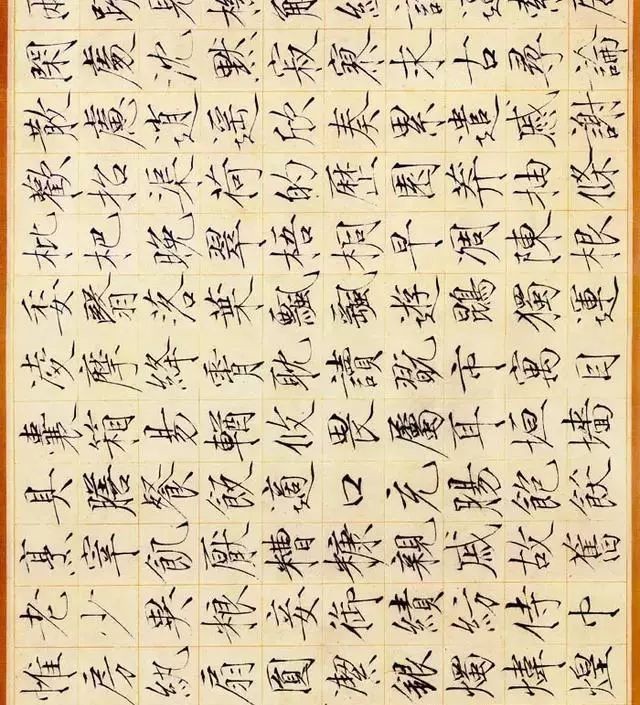 閑處沈默寂寥求古尋論
散慮逍遥欣奏累遣慼謝
歡招渠荷的歷園莽抽條
枇杷晚翠梧桐早凋陳根
委翳落葉飄颻遊鵾獨運
凌摩絳霄耽讀翫市寓目
囊箱易輶攸畏屬耳垣墻
具膳餐飯適口充腸飽飫
烹宰飢厭糟糠親戚故舊
老少異粮妾御績紡侍巾
帷房紈扇圓絜銀燭煒煌